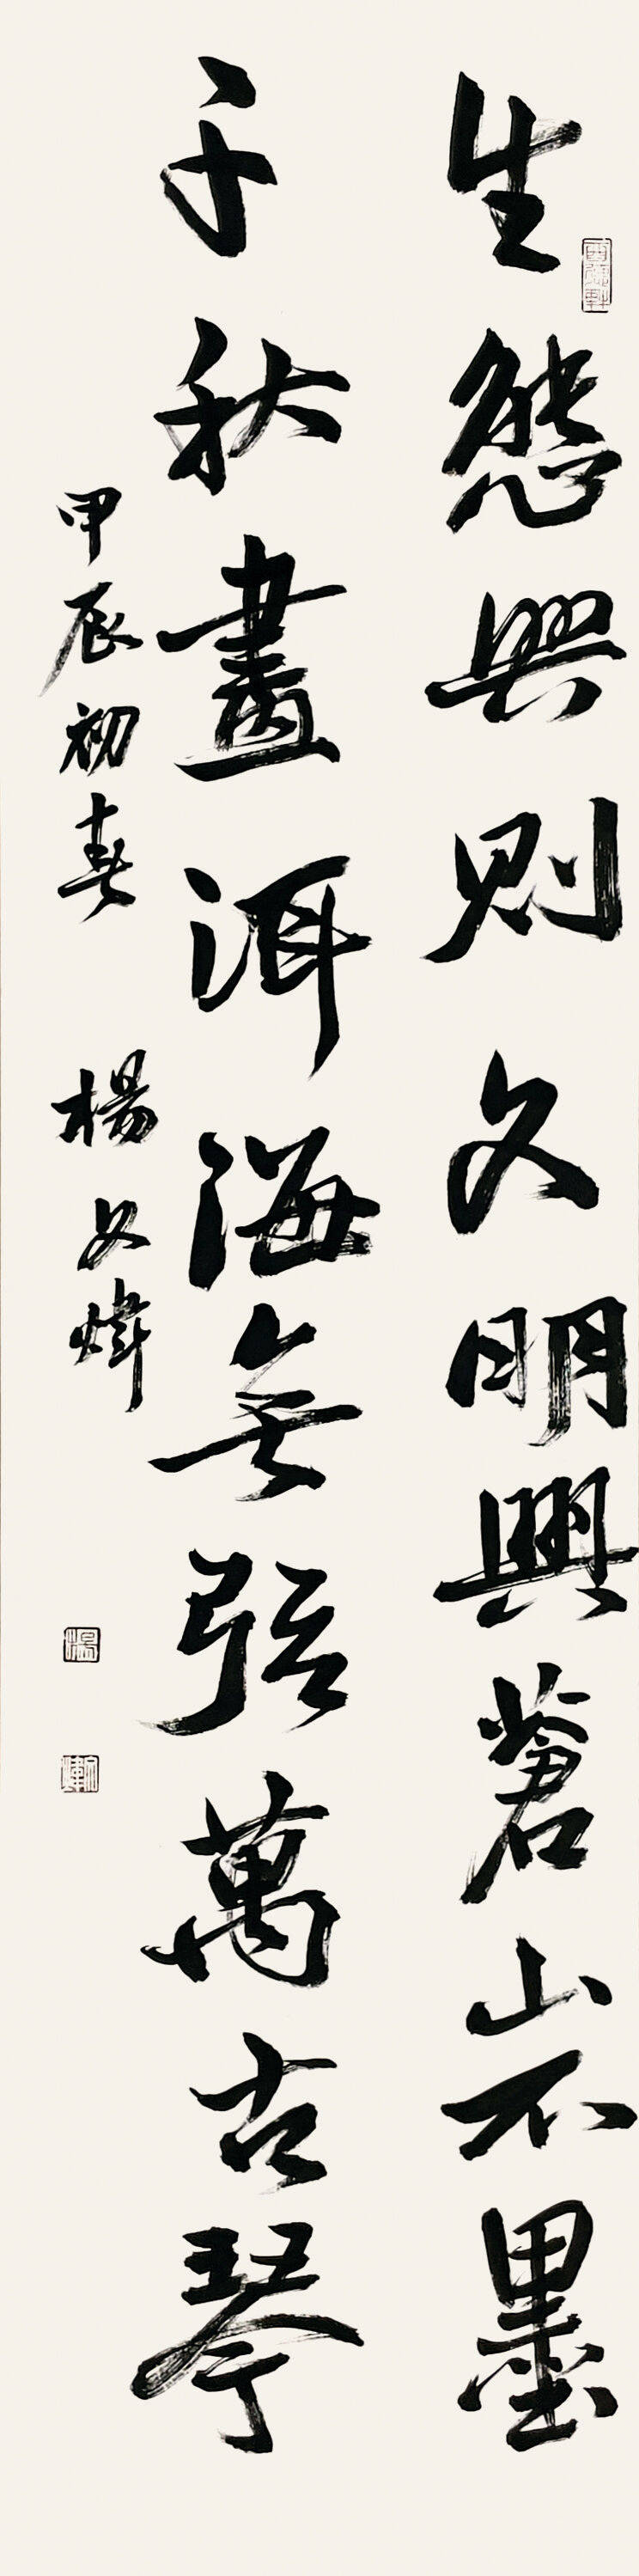 生態興則文明興蒼山不墨
千秋畫洱海無弦萬古琴
甲辰初春 楊文煒